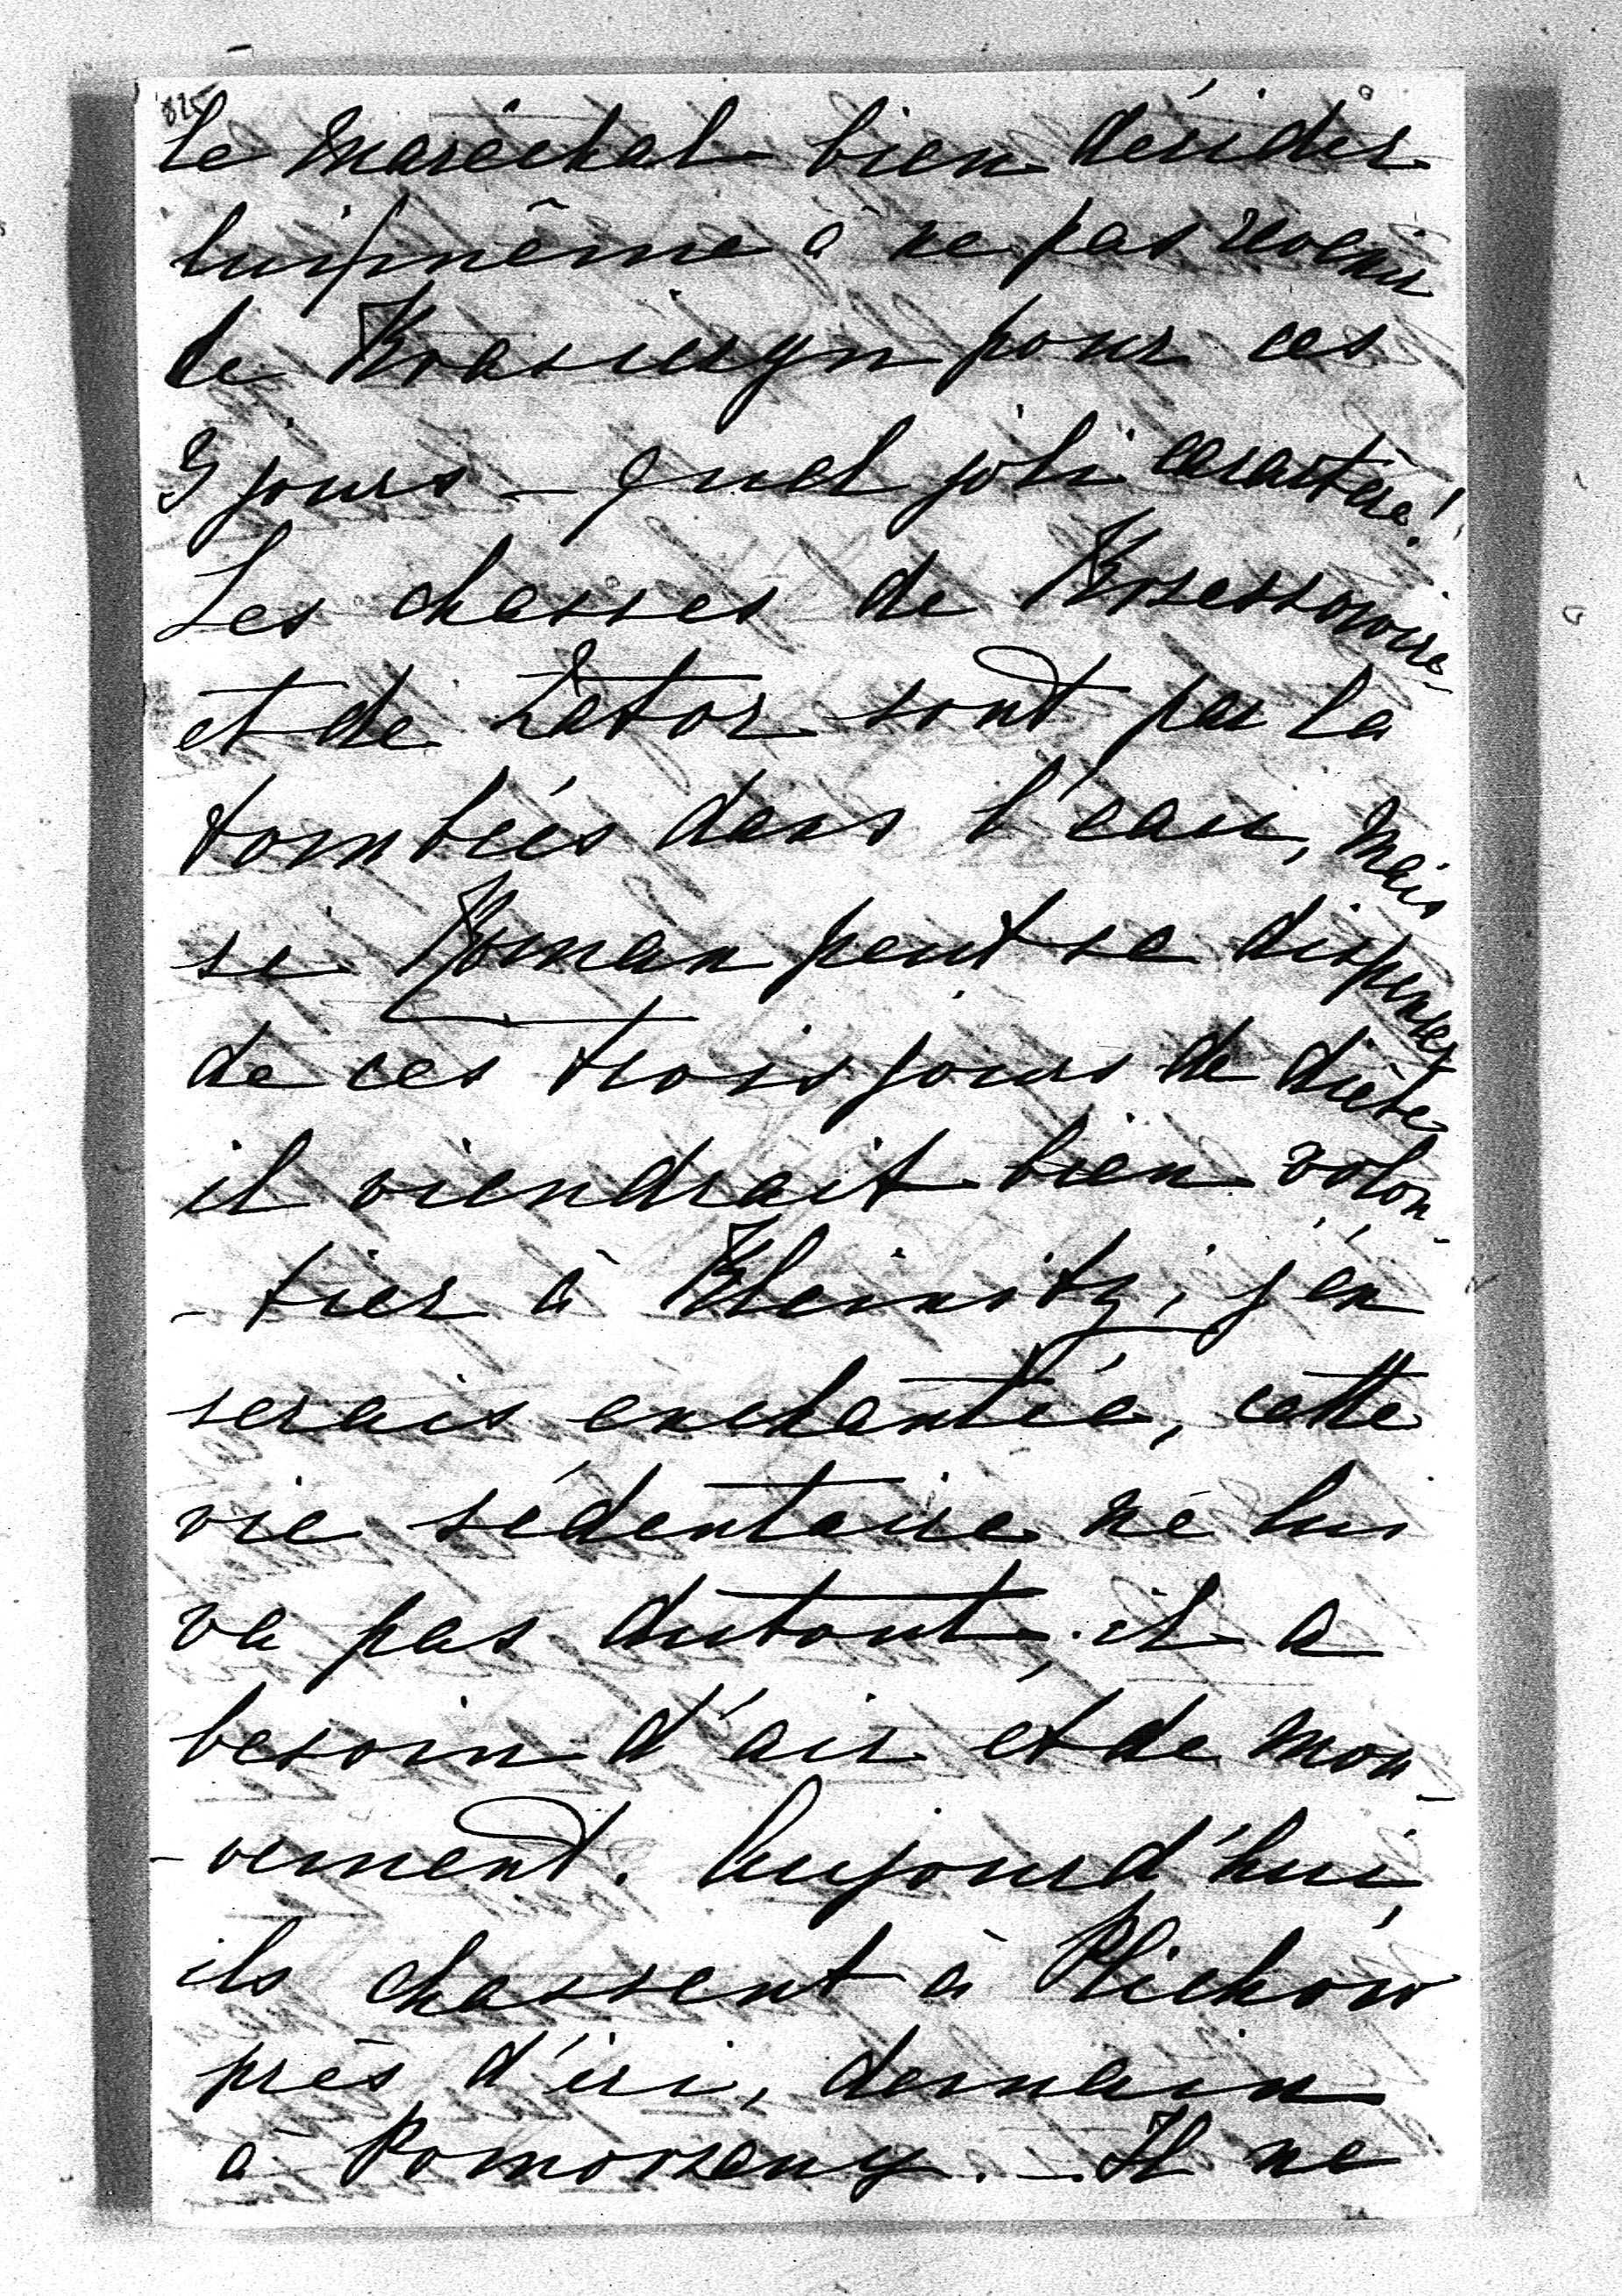 825
le maréchal bien décider
lui même à ne pas revenir
de Krasiczyn pour ces
3 jours – quel joli caractère!
Les chasses de Krzessowice
et de Zator sont par là
tombées dans l'eau, mais
si Roman peut se dispenser
de ces trois jours de diète
il viendrait bien volon-
-tier à Kleinitz, j'en
serais enchantée, cette
vie sédentaire ne lui
va pas dutout, il a
besoin d'air et de mou-
-vement. Aujourd'hui,
ils chassent à Plichów
près d'ici, demain
à Pomorzany. – Il ne